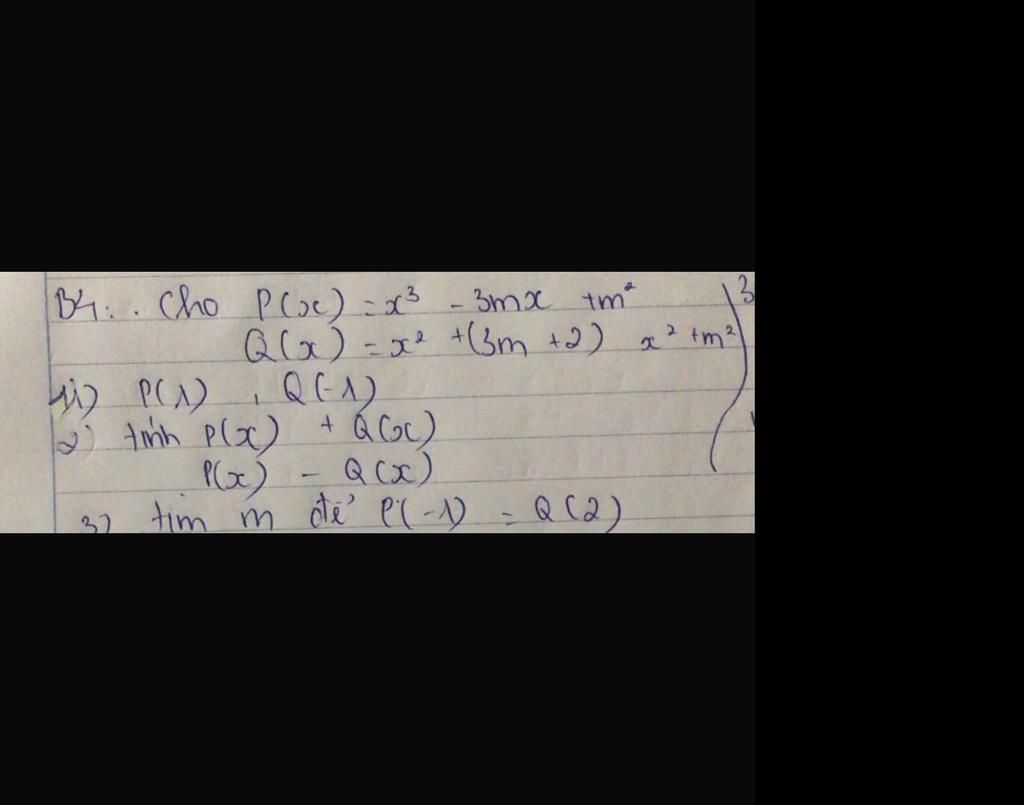 B4: . Cho P(x) = x³ - 3mx + m²
Q(x) = x² + (3m + 2) x² + m²
1) P(1) , Q(-1)
2) tính P(x) + Q(x)
P(x) - Q(x)
3) tìm m để P(-1) = Q(2)
3